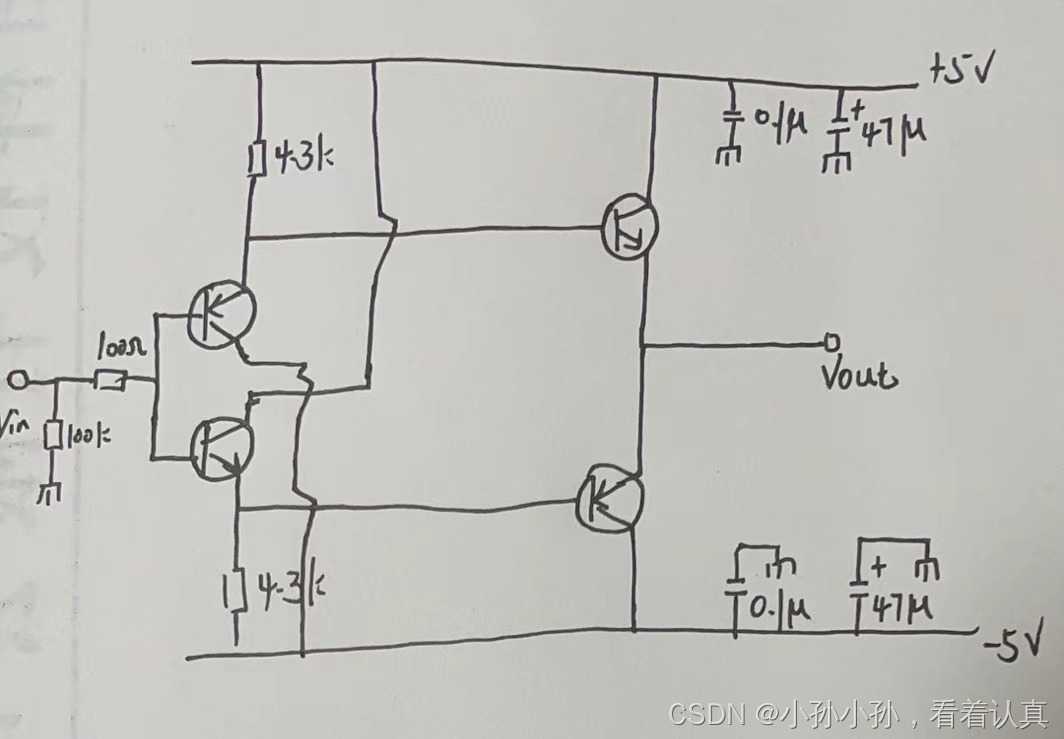 +5V
0.1μ
+
47μ
4.3k
100Ω
Vin
100k
Vout
4.3k
+
0.1μ
47μ
-5V
CSDN @小孙小孙，看着认真